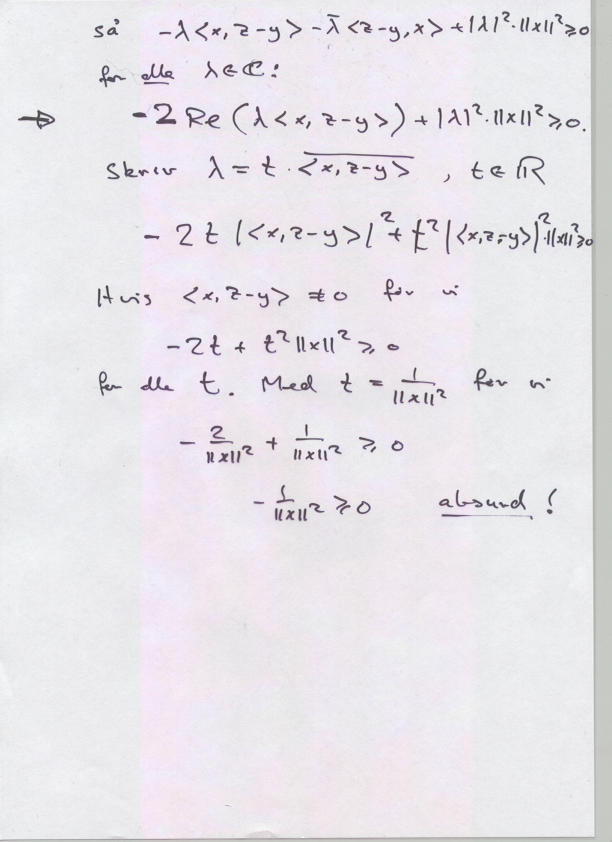 så -λ<x, z-y> - λ̄<z-y, x> + |λ|²·||x||² ≥ 0
for alle λ∈ℂ:
⇒ -2 Re(λ<x, z-y>) + |λ|²·||x||² ≥ 0.
Skriv λ = t · \overline{<x, z-y>}, t∈ℝ
- 2t |<x, z-y>|² + t² |<x, z-y>|²·||x||² ≥ 0
Hvis <x, z-y> ≠ 0 får vi
-2t + t² ||x||² ≥ 0
for alle t. Med t = 1/||x||² får vi
- 2/||x||² + 1/||x||² ≥ 0
- 1/||x||² ≥ 0 absurd!